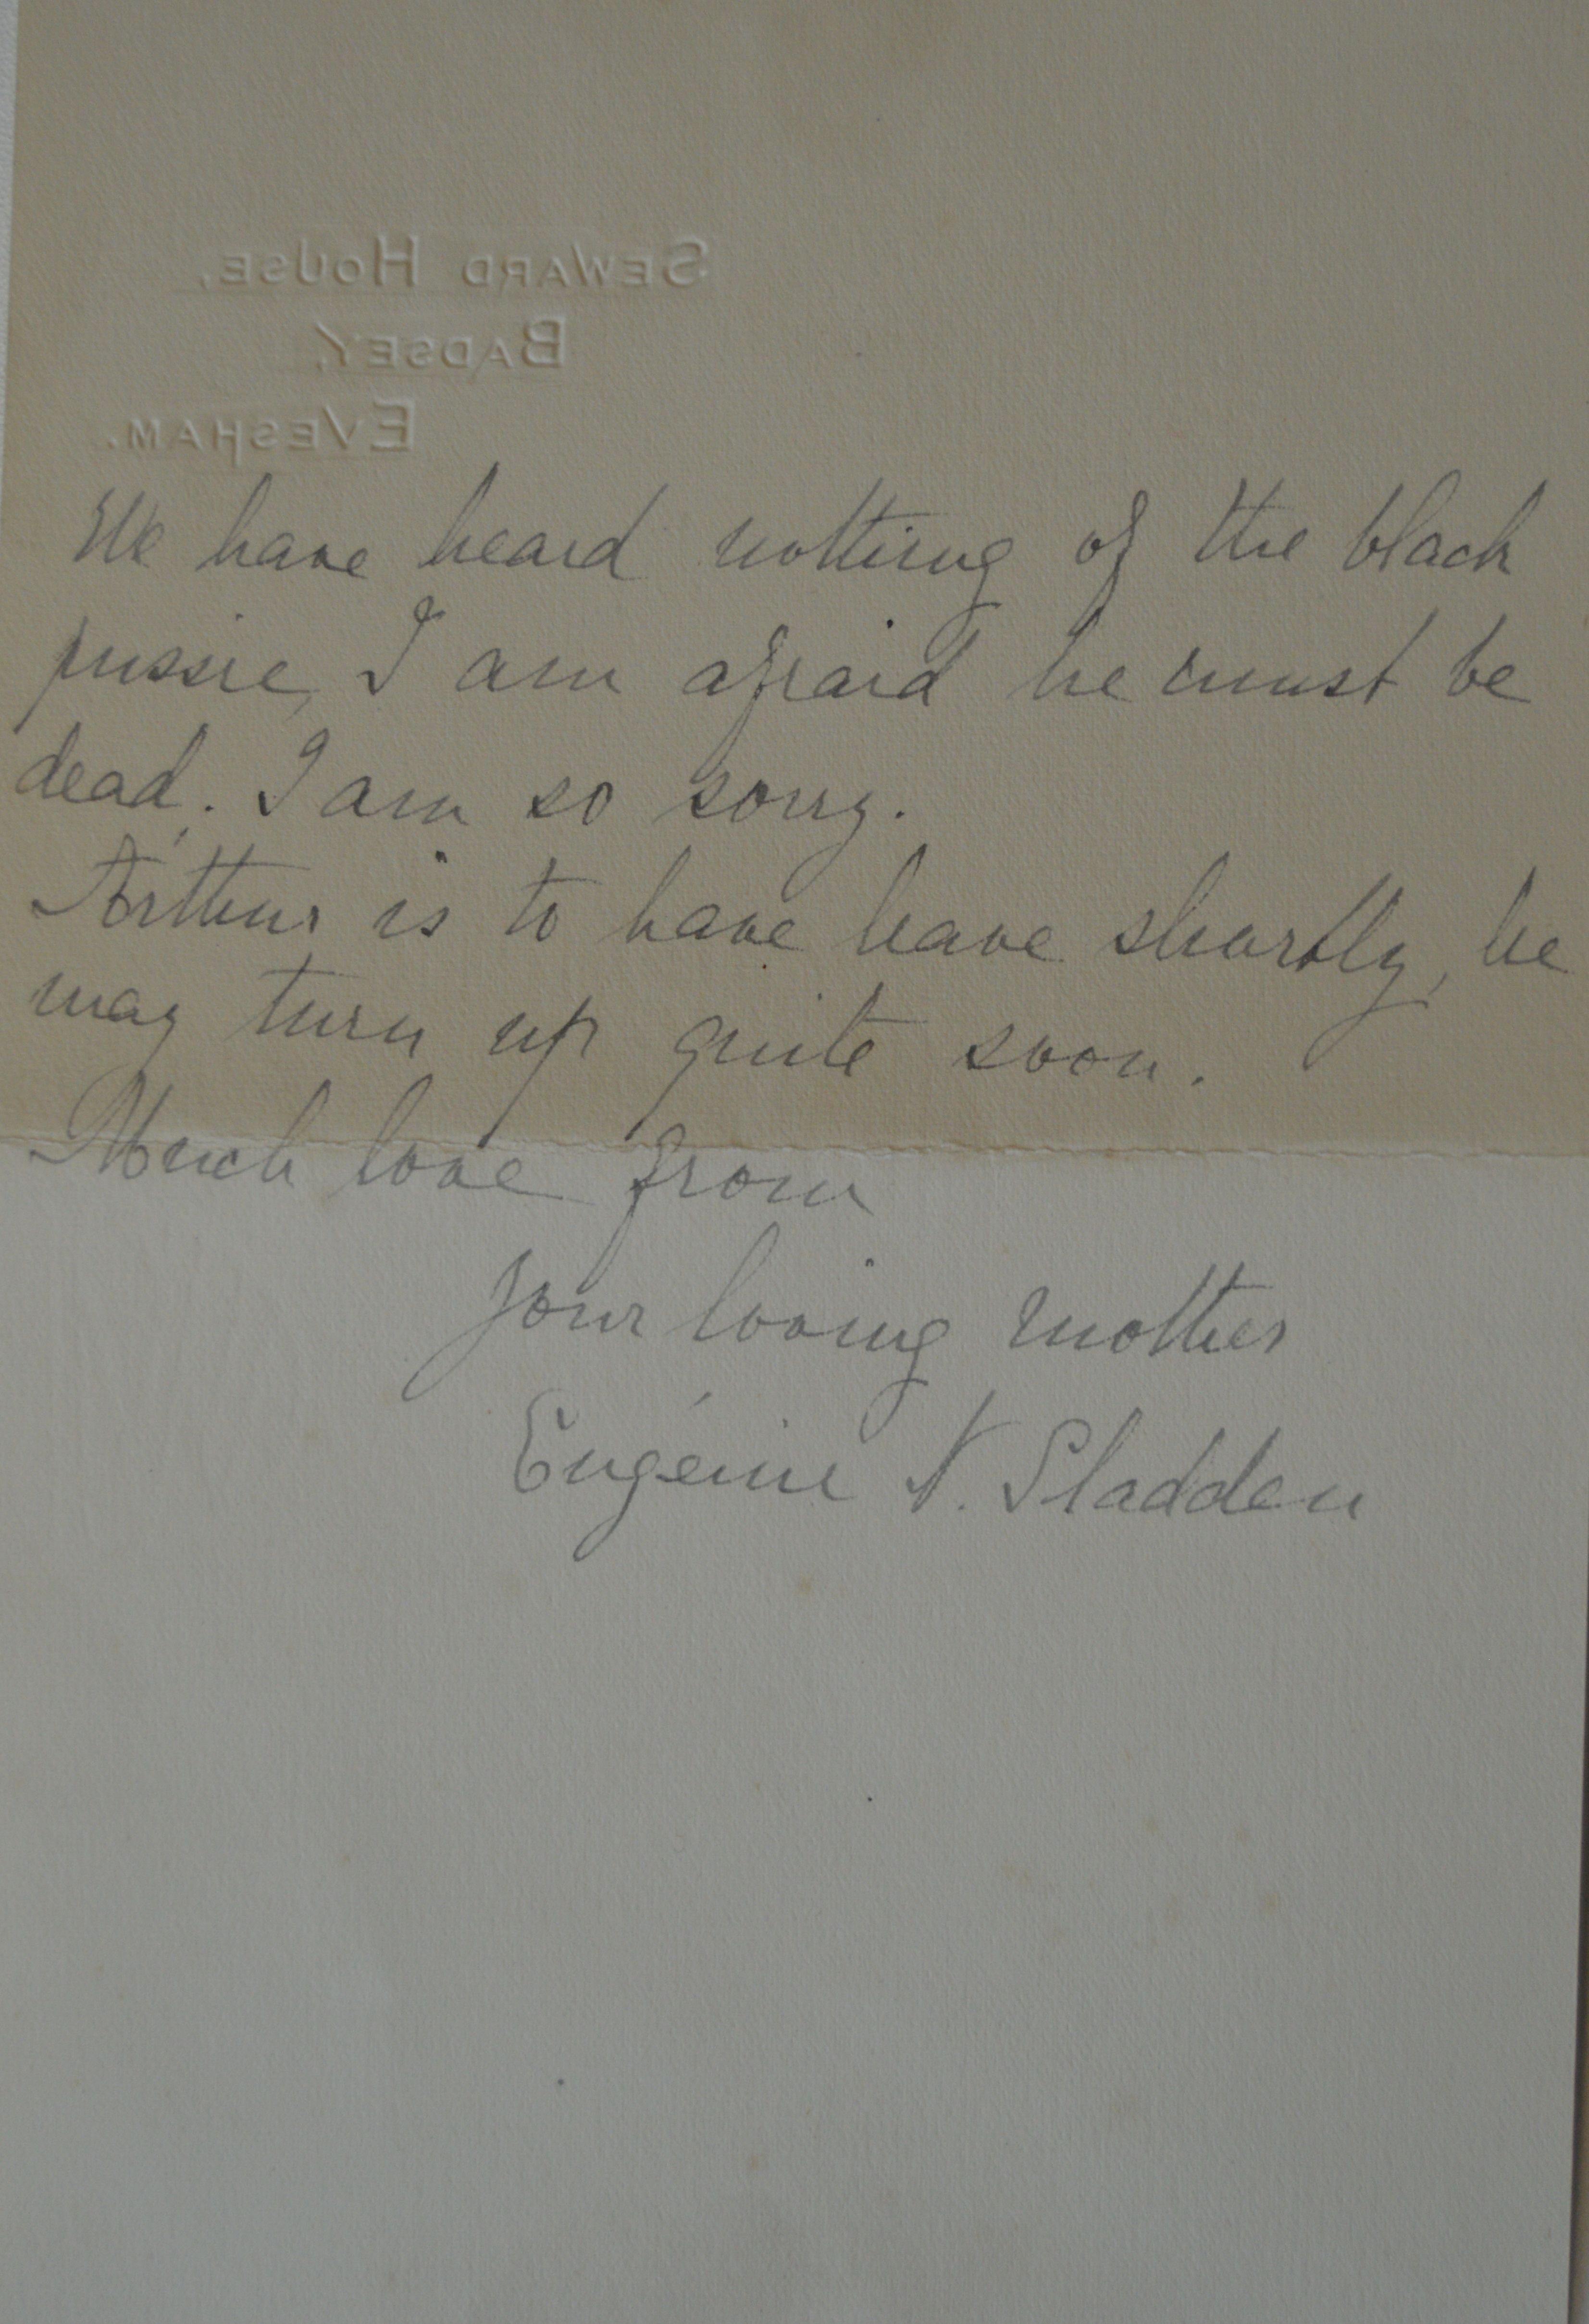 SEWARD HOUSE,
BADSEY,
EVESHAM.
We have heard nothing of the black
pussie, I am afraid he must be
dead. I am so sorry.
Arthur is to have leave shortly, he
may turn up quite soon.
Much love from
your loving mother
Eugénie N. Sladden